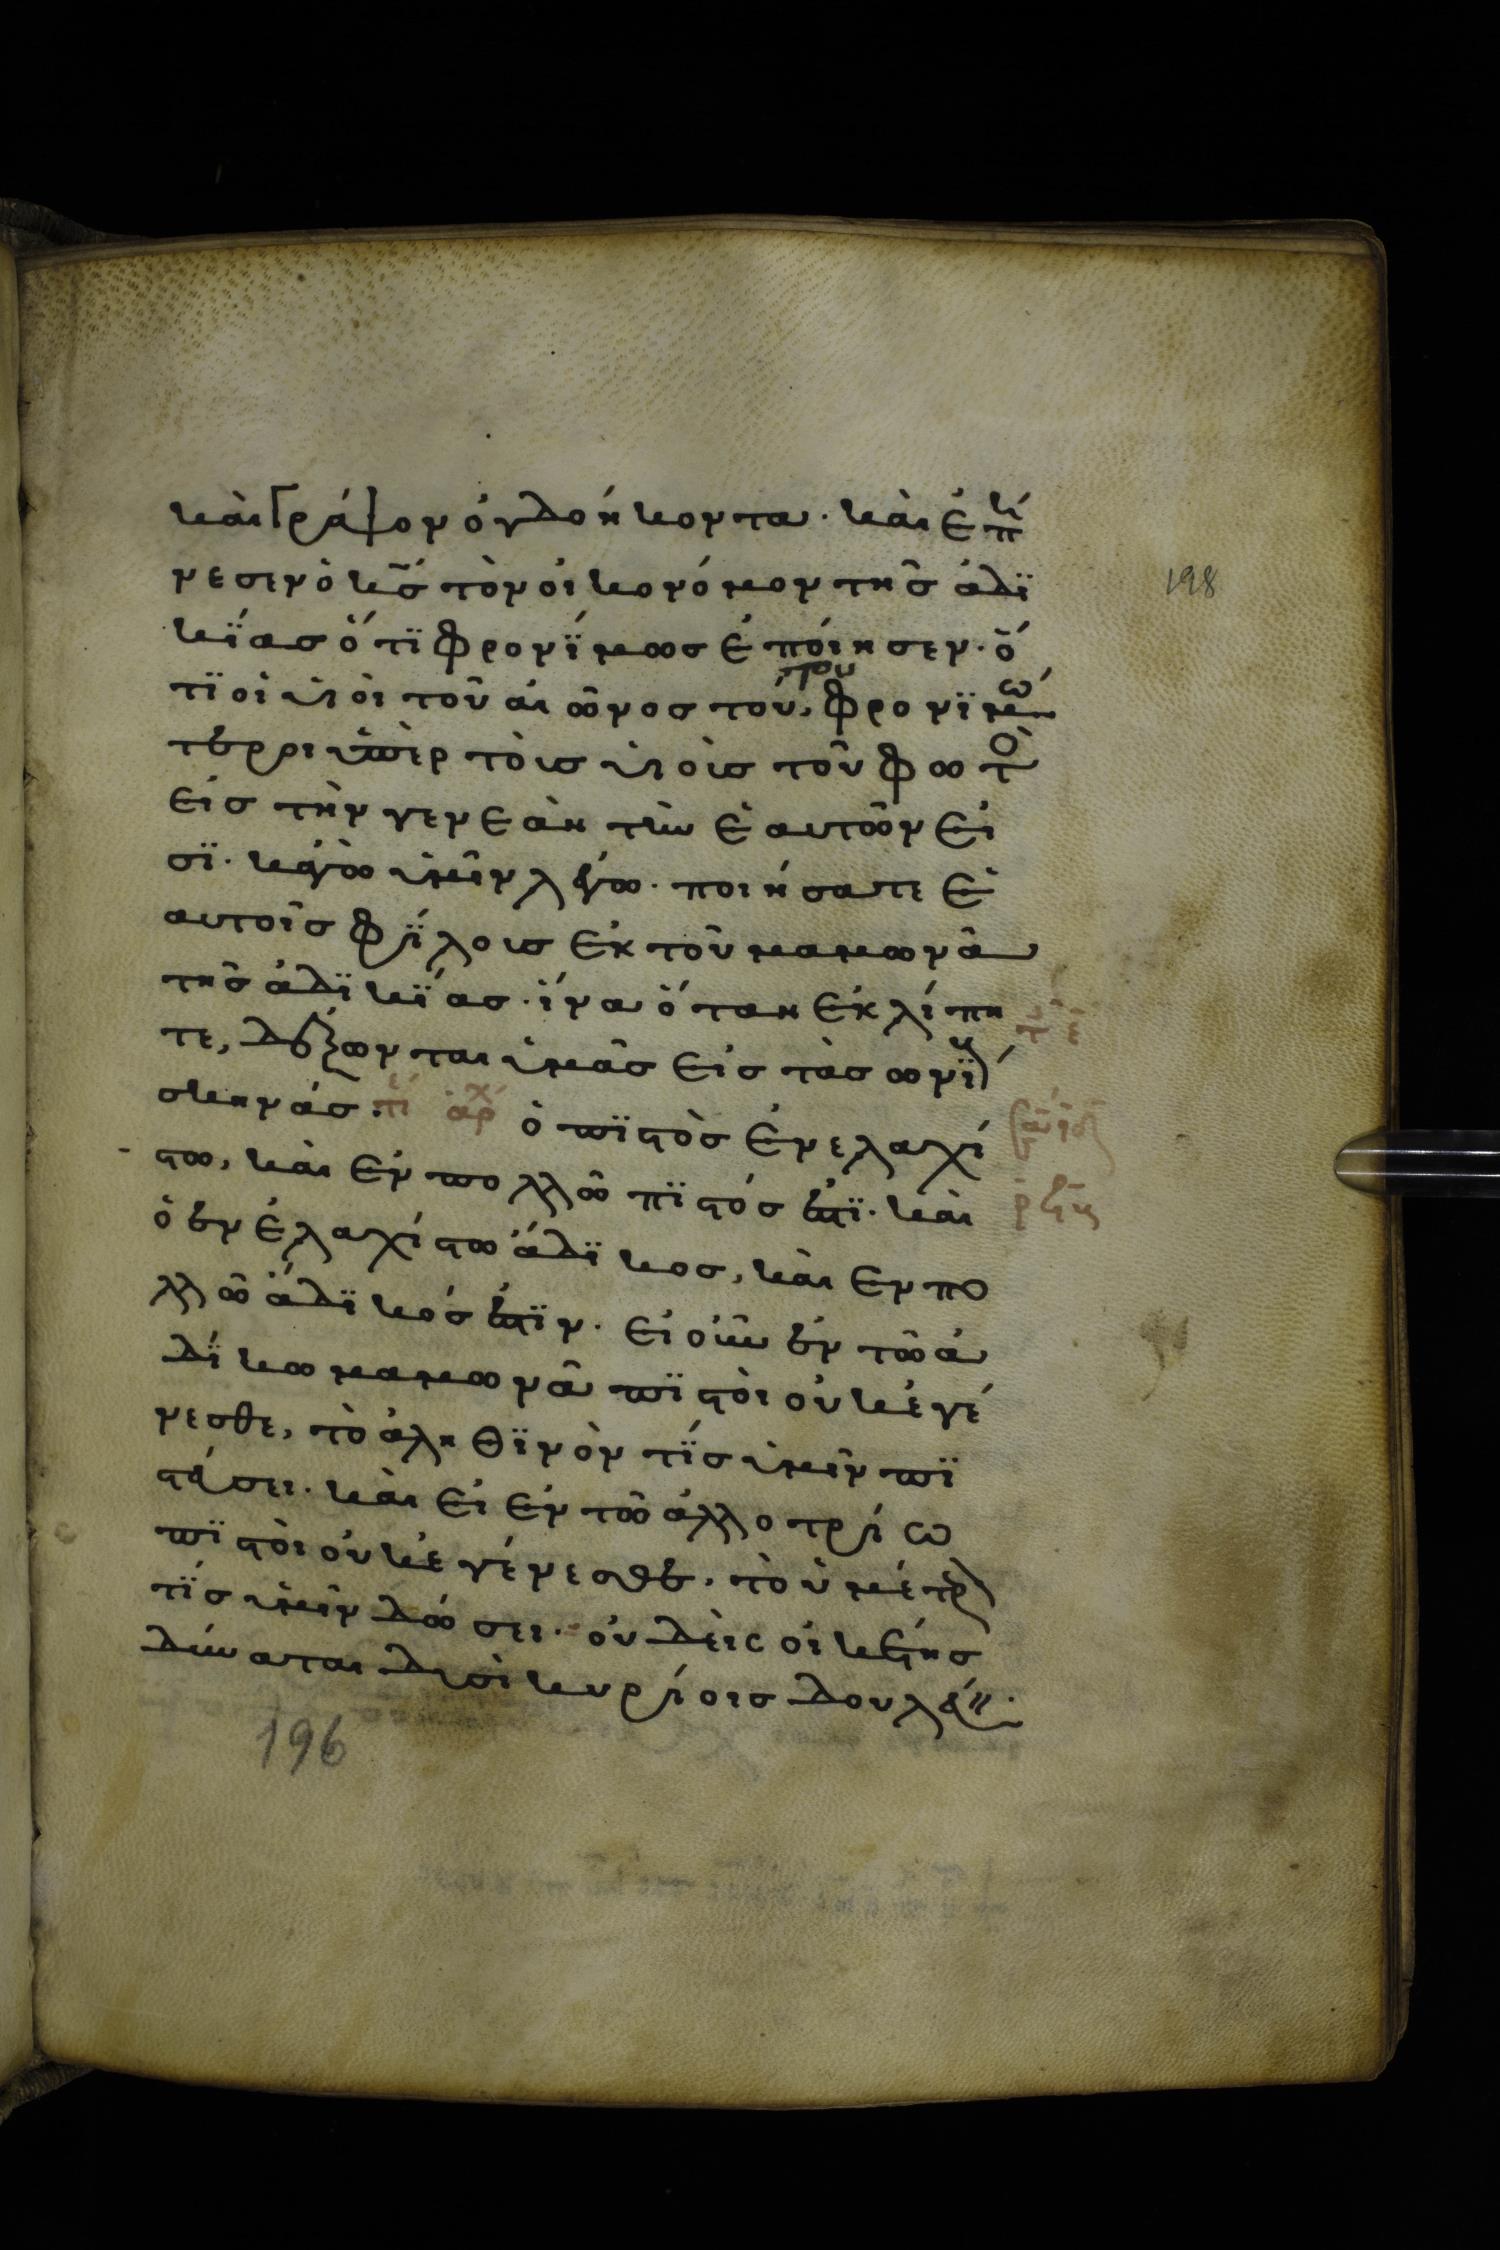 καὶ γράψον ὀγδοήκοντα· καὶ ἐπή
νεσεν ὁ κ̅ς̅ τὸν οἰκονόμον τῆς ἀδϊ
κΐας ὅτϊ φρονΐμως ἐποίησεν· ὅ
τϊ οἱ υἱοὶ τοῦ αἰῶνος τούτου, φρονϊμώ
τεροι ὑπὲρ τοὺς υἱοὺς τοῦ φωτὸ
εἰς τὴν γενεὰν τὴν ἑαυτῶν εἰ
σϊ· κἀγὼ ὑμῖν λέγω· ποιήσατε ἑ
αυτοῖς φΐλους ἐκ τοῦ μαμωνᾶ
τῆς ἀδϊκΐας· ἵνα ὅταν ἐκλίπη
τε, δέξωνται ὑμᾶς εἰς τὰς αἰωνΐ
σκηνάς· ὁ πϊστὸς ἐν ἐλαχί
στω, καὶ ἐν πολλῶ πϊστός ἐστϊ· καὶ
ὁ ἐν ἐλαχίστω ἄδϊκος, καὶ ἐν πο
λλῶ ἄδϊκός ἐστϊν· εἰ οὖν ἐν τῶ ἀ
δΐκω μαμωνᾶ πϊστοὶ οὐκ ἐγέ
νεσθε, τὸ ἀληθϊνὸν τΐς ὑμῖν πϊ
στεύσει· καὶ εἰ ἐν τῶ ἀλλοτρίω
πϊστοὶ οὐκ ἐγένεσθε, τὸ ὑμέτρ
τΐς ὑμῖν δώσει· οὐδεὶς οἰκέτης
δύναται δυσὶ κυρίοις δουλεύειν·
196
198